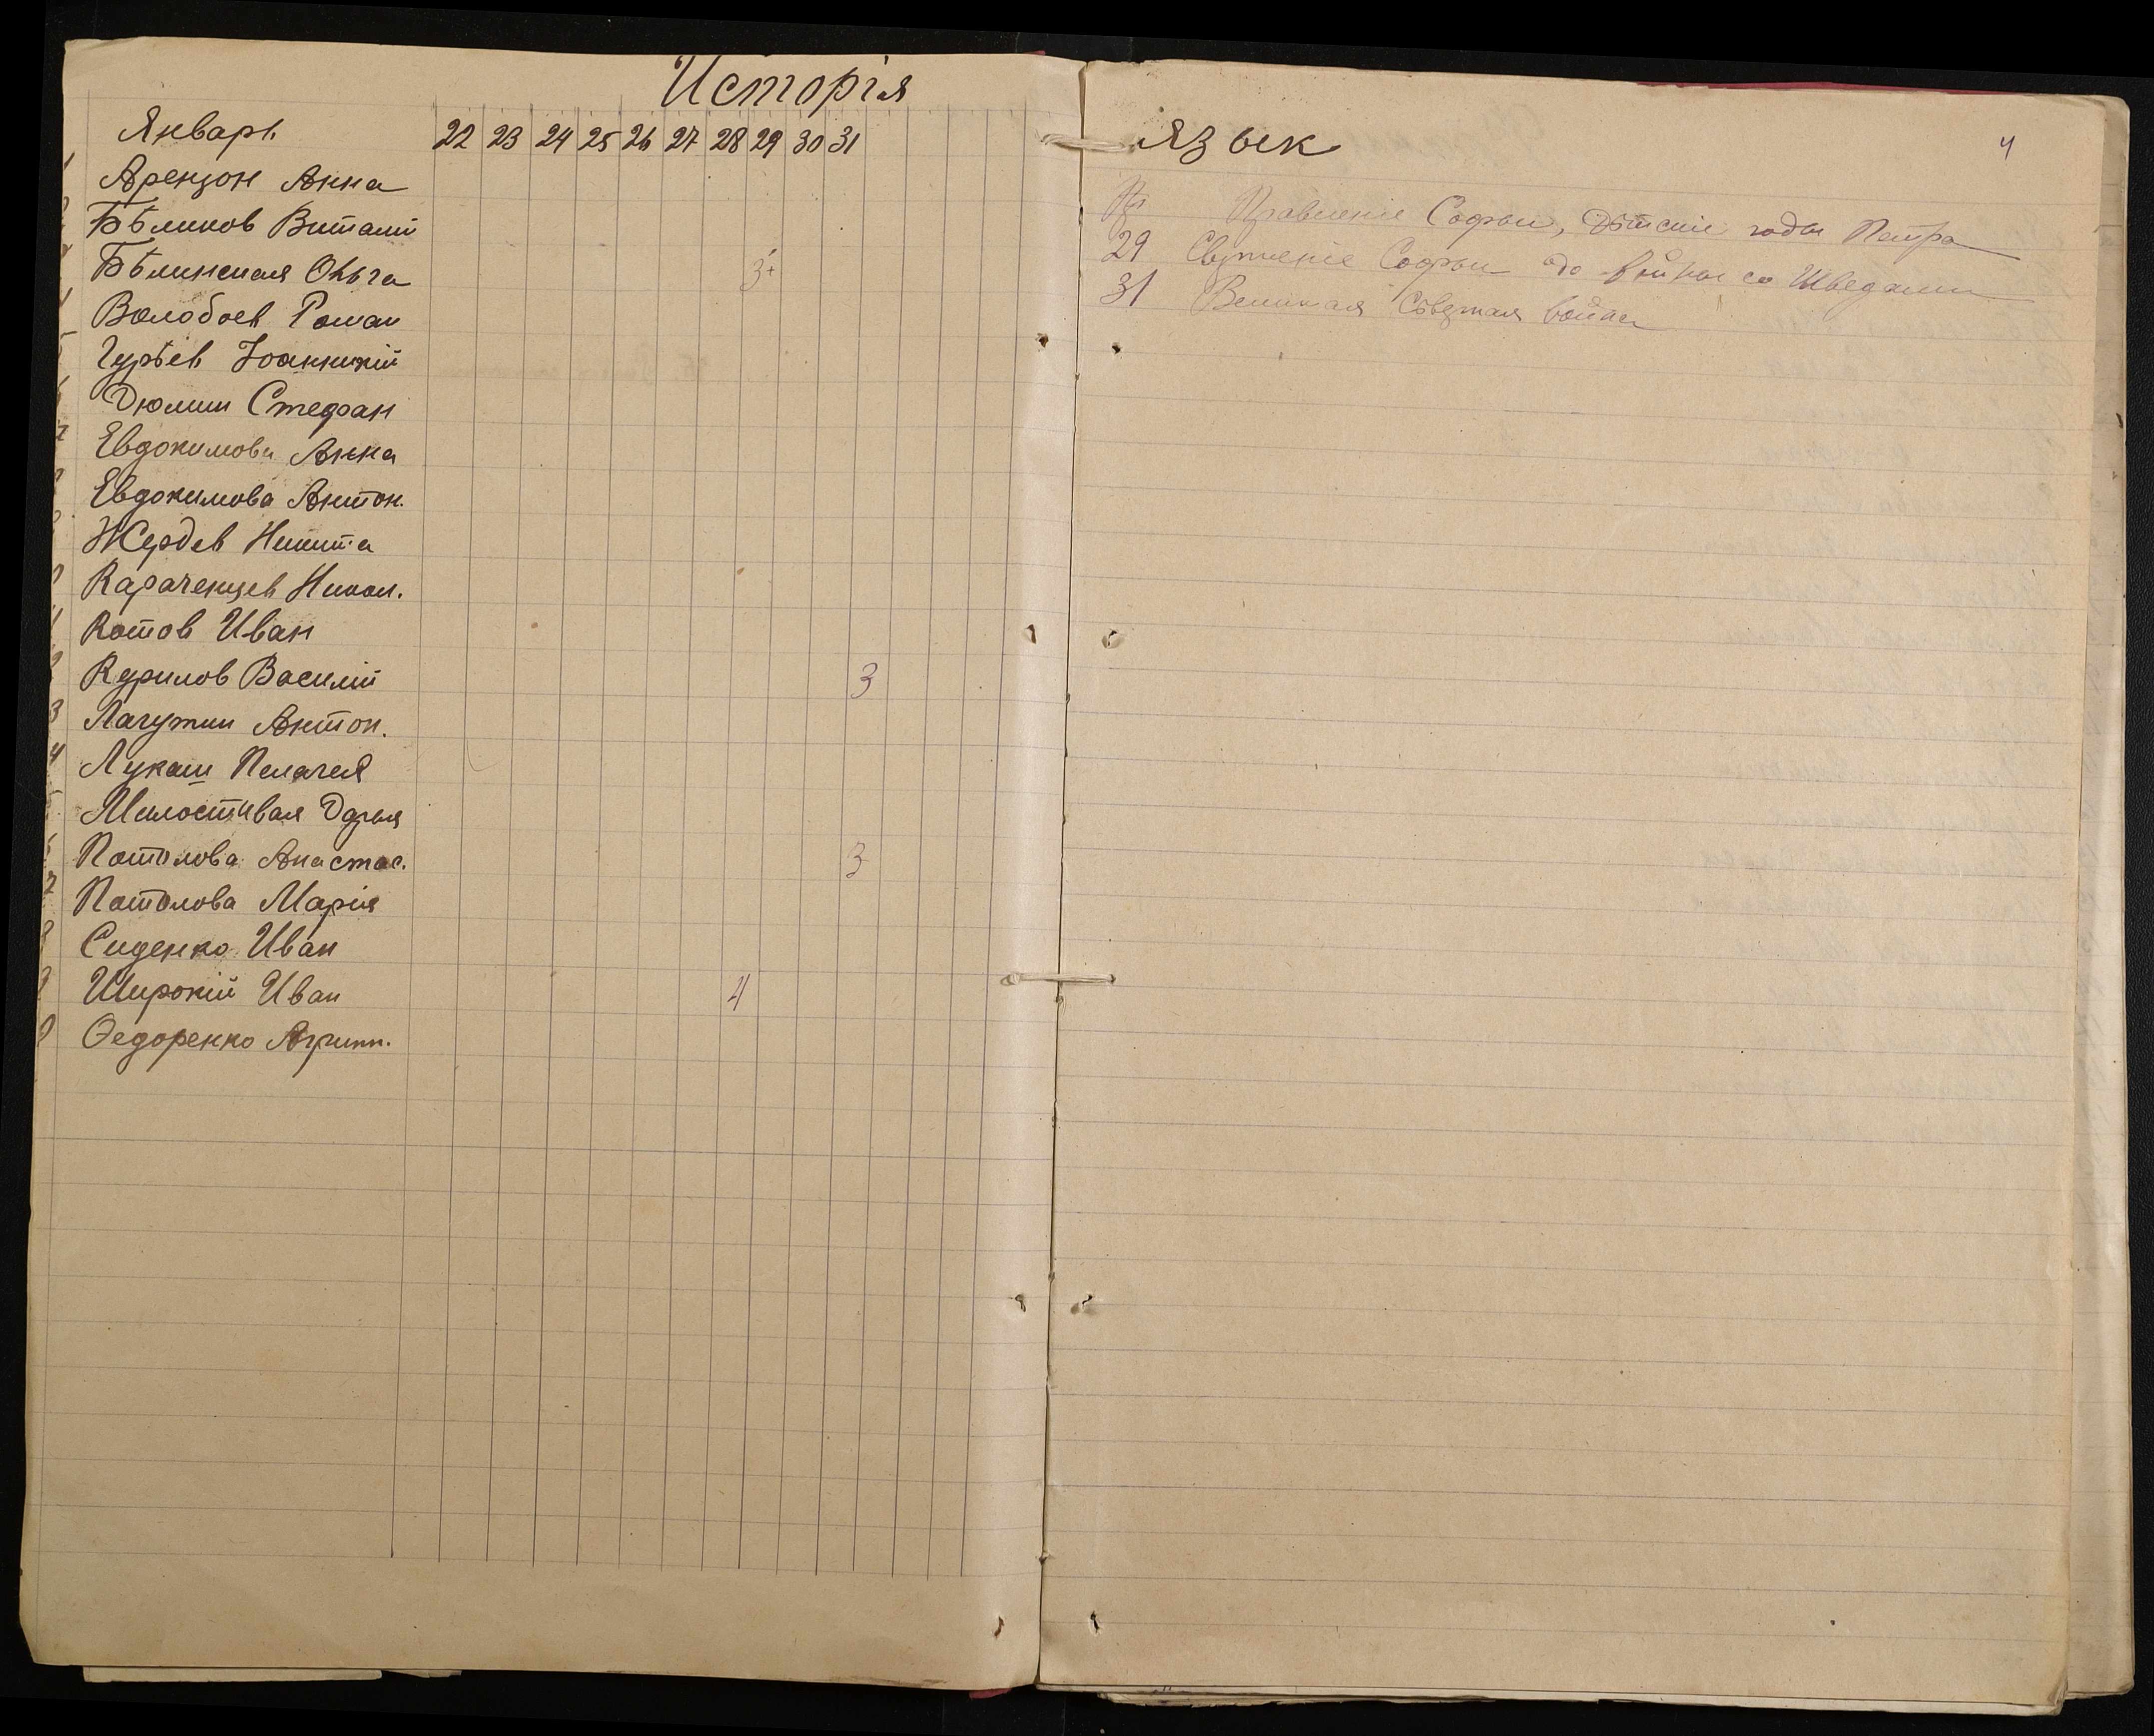 Исторія
Январь 22 23 24 25 26 27 28 29 30 31
Аренцон Анна
Бѣликов Виталий
Бѣлинская Ольга 3+
Волобоев Роман
Гурьев Іоанникий
Дюмин Стефан
7 Евдокимова Анна
Евдокимова Антон.
Жердев Никита
Караченцев Никол.
Котов Иван
Курилов Василій 3
3 Лачужин Антон.
4 Лукаш Пелагея
Милостивая Дарья
Потолова Анастас. 3
7 Потолова Марія
Сиденко Иван
Широкій Иван 4
Ѳедоренко Агрипп.
язык
4
Правленіе Софьи, дѣтскіе годы Петра
29 Свержение Софьи до войны со Шведами
31 Великая Сѣверная война